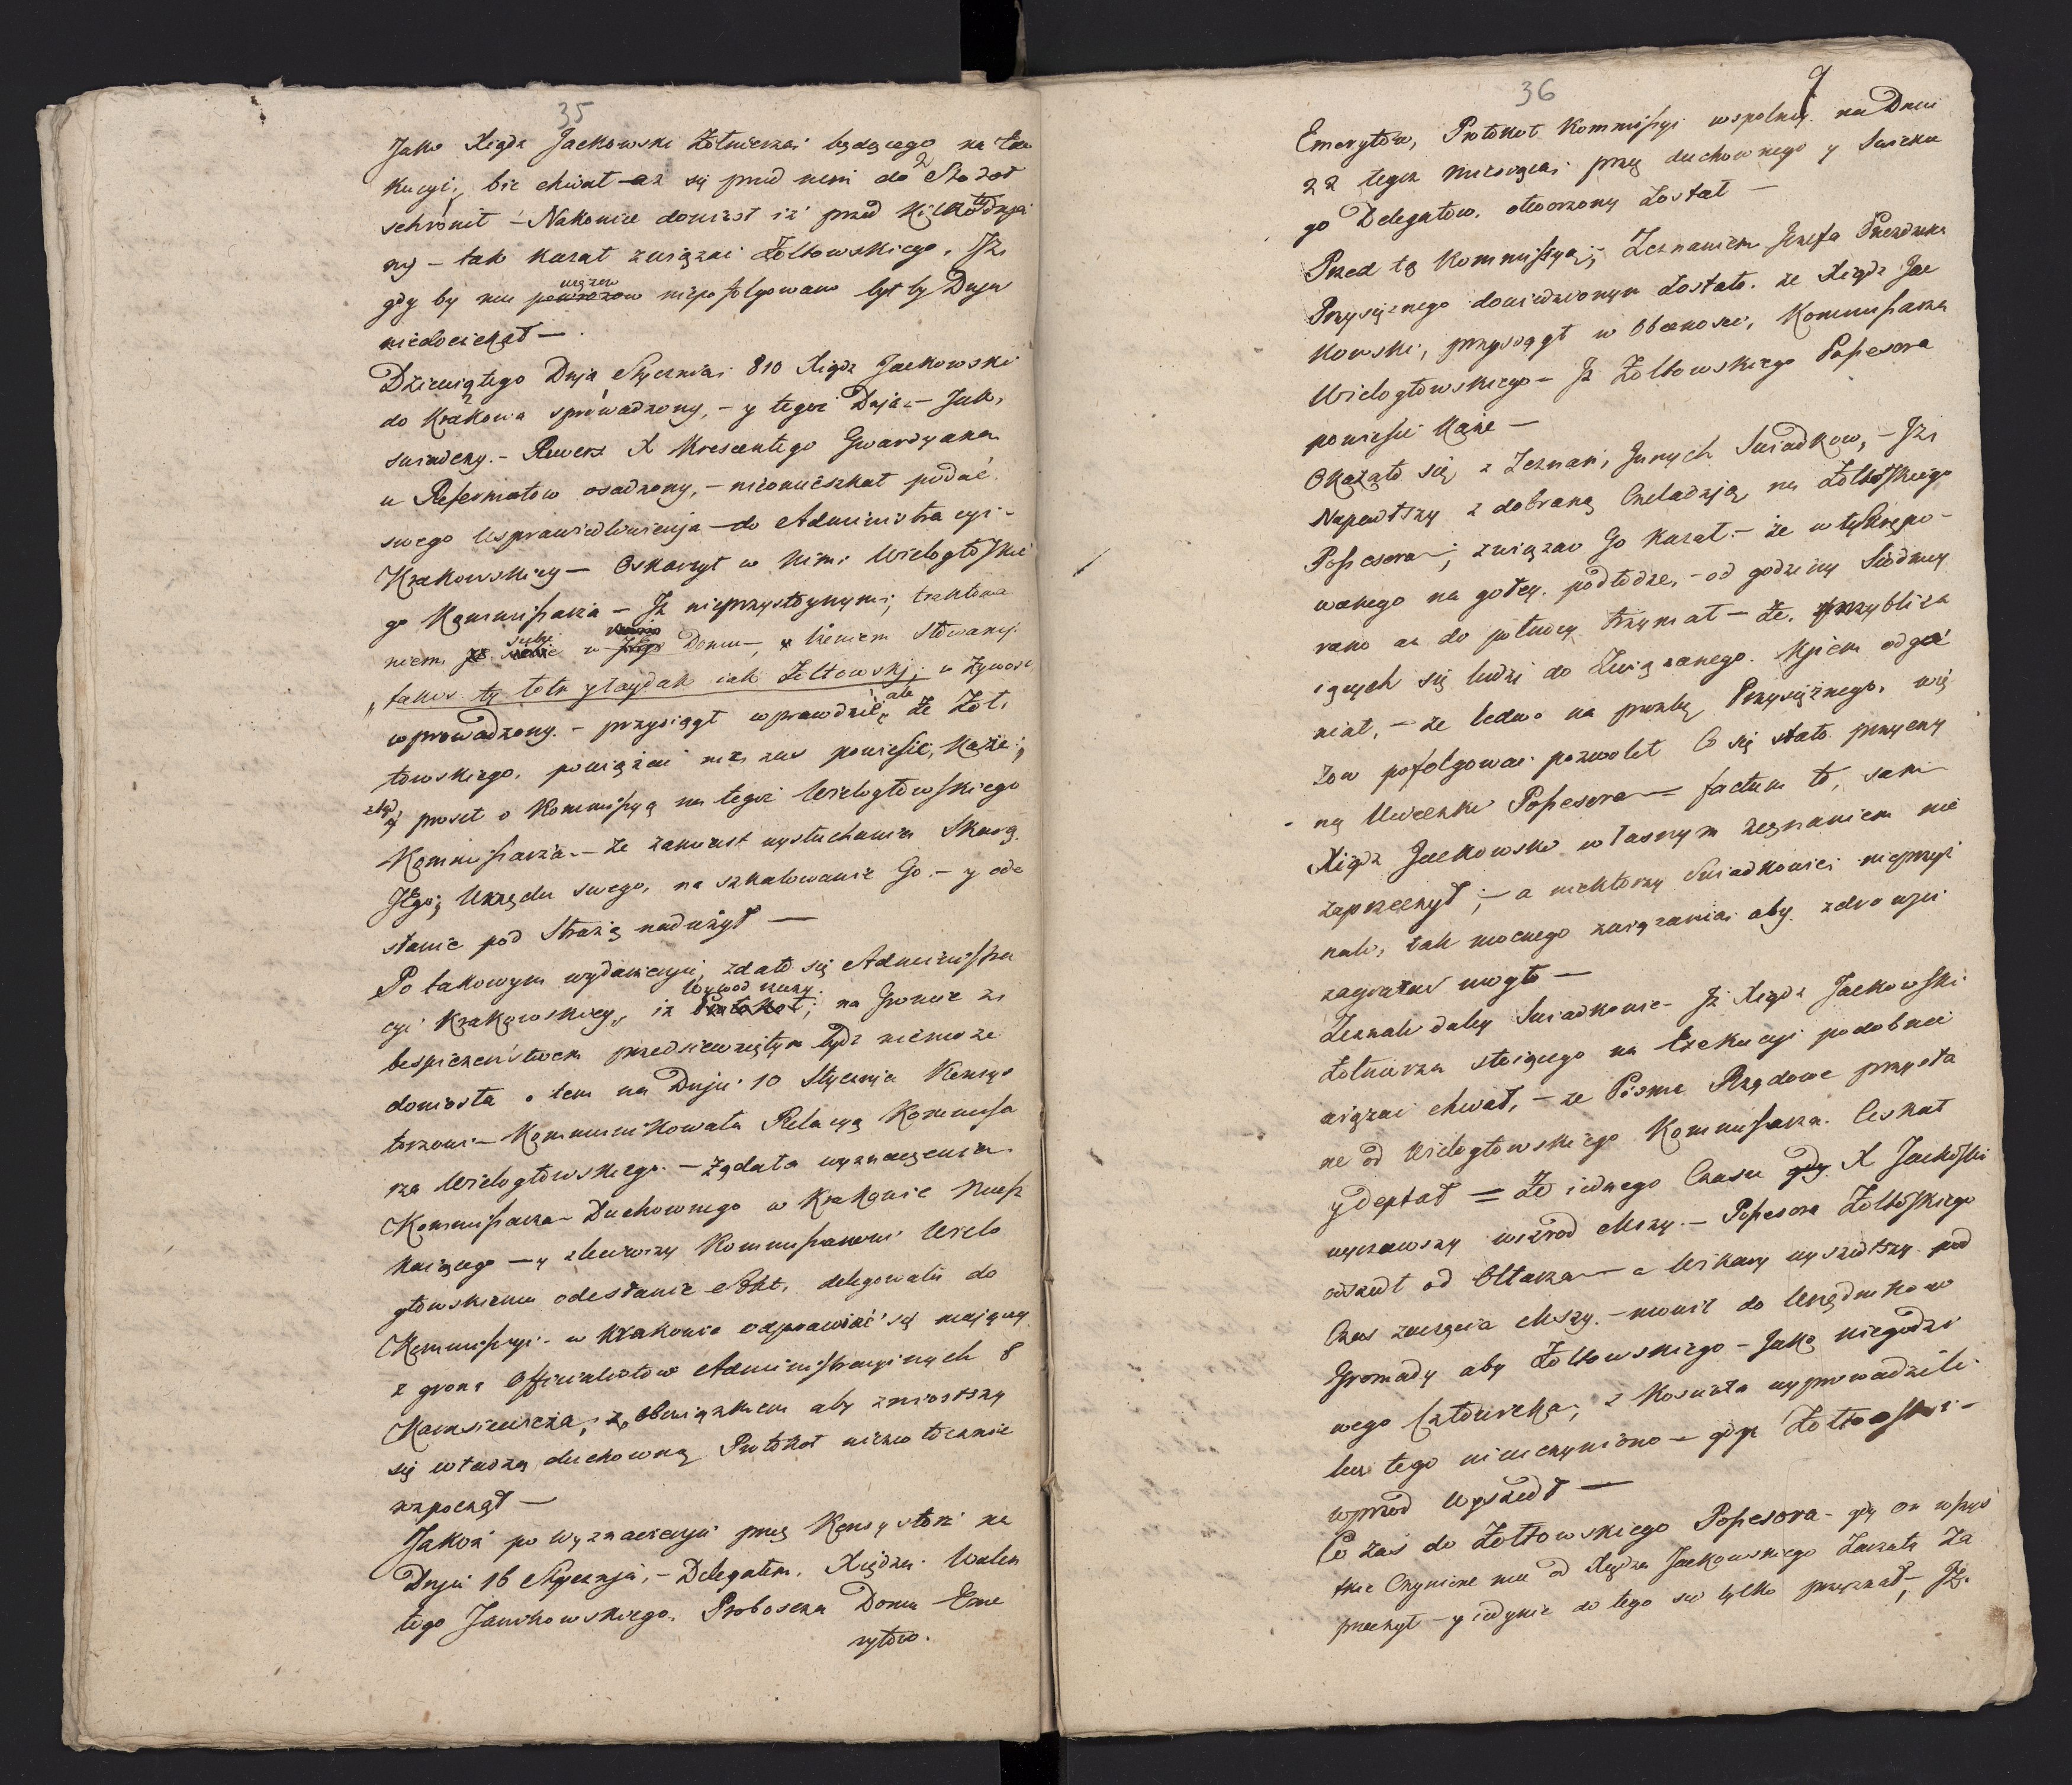 35
Jako Xiądz Jackowski Żołnierza będącego na Exe
kucyi, bic chciał az się przed nim do Stodoł
schronił – Nakoniec doniosł iż przed
ny – tak kazał związać Żołtowskiego, Iż
gdy by mu powrozow więzow niepofolgowano był by Dnia
niedoczekał –
Dziewiątego Dnia Stycznia 810 Xiądz Jackowski
do Krakowa sprowadzony, – y tegoż Dnia – Jak
swiadczy – Rewers X Krescentego Gwardyana
u Reformatow osadzony, – nieomieszkał podać
swego Usprawiedliwienia – do Administracyi
Krakowskiey – Oskarzył w nim Wielogłoskie
go Kommissarza – Iż nieprzystoynym traktowa
niem w Domu –
„takos ty łotr y łaydak iak Żołtowski; w żywosc
wprowadzony – przysiągł wprawdzie, ale że Żoł
towskiego, powiązać niz zas powiesić, każe;
y prosił o Kommissyą na tegoż Wielogłowskiego
Kommissarza – że zamiast wysłuchania Skarg
Jego; Urzędu swego, na szkalowanie Go – y ode
słanie pod Strażą nadużył –
Po takowym wydarzeniu, zdało się Administra
cyi Krakowskiey, iż Protokoł Wywod; na Gruncie z
bespieczeństwem przedsiewziętym bydz niemoże
doniosła o tem na Dniu 10 Stycznia Konsys
torzowi – Kommunikowała Relacyą Kommissa
rza Wielogłowskiego – żądała wyznaczenia
Kommissarza Duchownego w Krakowie Miesz
kaiącego – y zleciwszy Kommissarzowi Wielo
głowskiemu odesłanie Akt, delegowała do
Kommissyi w Krakowie odprawiać się maiącey
z grona Officialistow Administracyinych
z Obowiązkiem aby zniosłszy
się z władzą duchowną Protokoł niezwłocznie
rozpoczął –
Jakoż po wyznaczeniu przez Konsystorz na
Dniu 16 Stycznia, – Delegatem, Xiędza Walen
tego Jankowskiego, Proboszcza Domu Eme
rytow.
36
9
Emerytow, Protokoł Kommissyi wspolney na Dniu
22 tegoż miesiąca przez duchownego y Swieckie
go Delegatow, otworzony został –
Przed tą Kommissyą; Zeznaniem Jozefa
Przysięznego dowiedzionym zostało, że Xiądz Jac
kowski, przysiągł w Obecnosci, Kommissarza
Wielogłowskiego – Iż Żołtowskiego Possesora
powiesić każe –
Okazało się z Zeznań, Innych Swiadkow, – Iż
Napadłszy z dobraną Czeladzią na Żołtoskiego
Possesora; związać Go kazał – że w tę Skrępo-
wanego na gołey podłodze, – od godziny Siodmey
rano az do południa trzymał – że, przybliża
iących się ludzi do Związanego. Kjiem odga
niał, – że ledwo na prozbę Przysięznego, wię
zow pofolgować pozwolił Co się stało przyczy
ną Ucieczki Possesora – factum to, sam
Xiądz Jackowski własnym zeznaniem nie
zaprzeczył; – a niektorzy Swiadkowie nieprzyz
nali, tak mocnego związania aby zdrowiu
zagrażać mogło –
Zeznali daley Swiadkowie Iż Xiądz Jackowski
Żołnierza stoiącego na Exekucyi podobnie
wiązać chciał, – że Pisma Rządowe przysła
ne od Wielogłowskiego Kommissarza. Ciskał
y deptał = Że iednego Czasu gdy X Jackoski
uyrzawszy wsrod Mszy – Possesora Żołtoskiego
odszedł od Ołtarza – a Wikary wyszedłszy pod
Czas zaczęcia Mszy – mowił do Urzędnikow
Gromady aby Żołtowskiego – Jako niegodzi
wego Człowieka, z Koscioła wyprowadzili
lecz tego nieuczyniono – gdyz Żołtoski –
wprzod wyszedł –
Co zaś do Żołtowskiego Possesora – gdy on wszys
tkie Czynione mu od Xiędza Jackowskiego Zarzuty Za
przeczył – y iedynie do tego się tylko przyznał – Iż